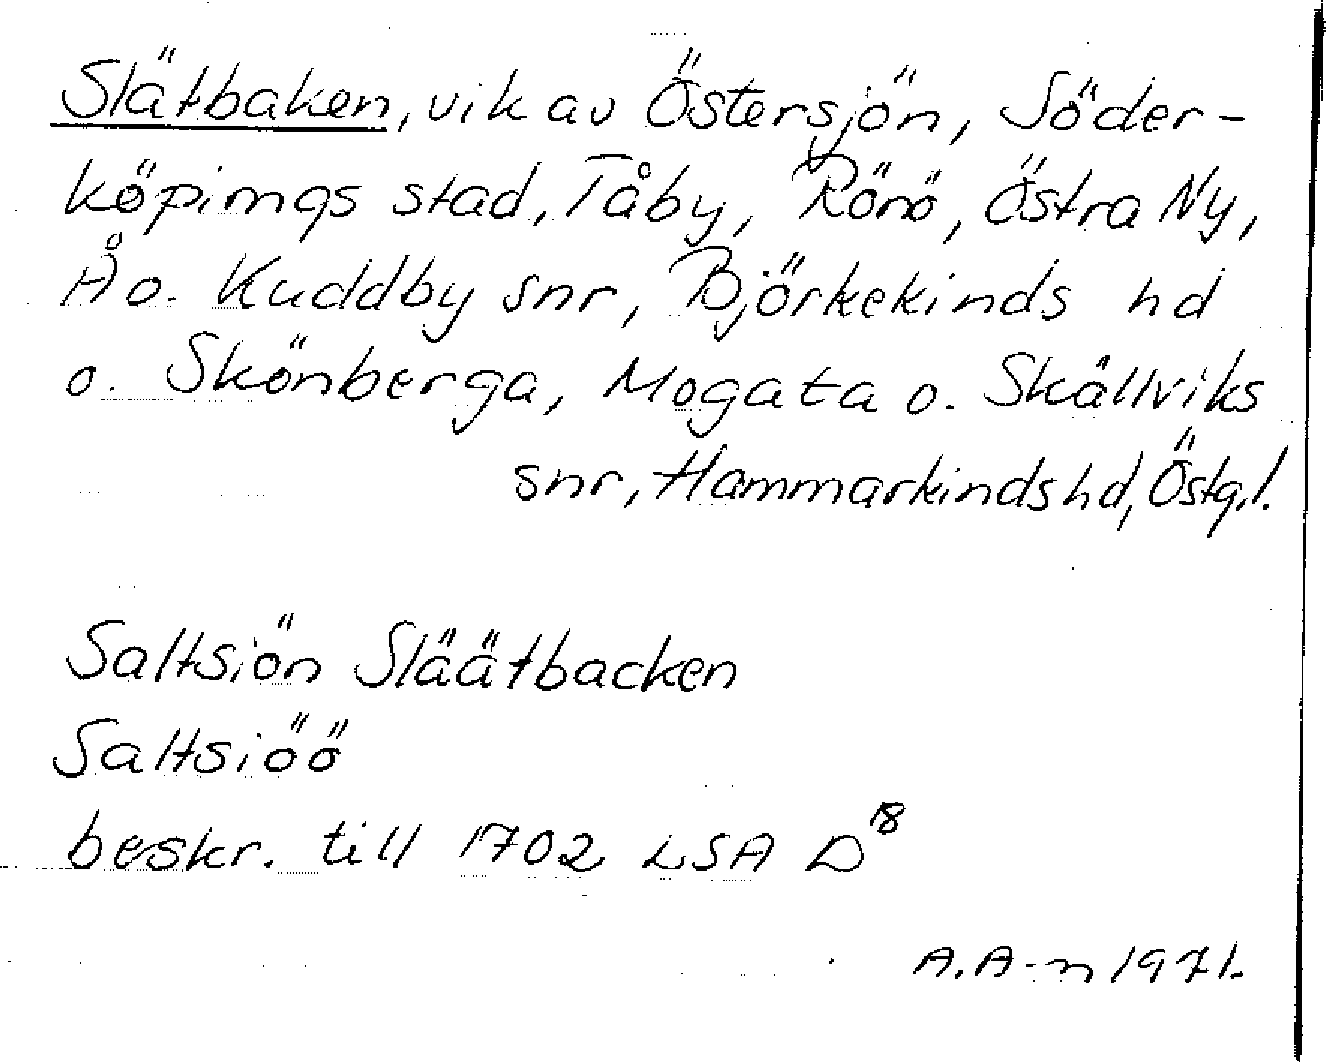 Slätbaken, vik av Östersjön, Söder-
köpings stad, Tåby, Rönö, Östra Ny,
Å o. Kuddby snr, Björkekinds hd
o. Skönberga, Mogata o. Skällviks
snr, Hammarkinds hd, Östg.l.
Saltsiön Släätbacken
Saltsiöö
beskr. till 1702 LSA D18
A.A-n 1971.